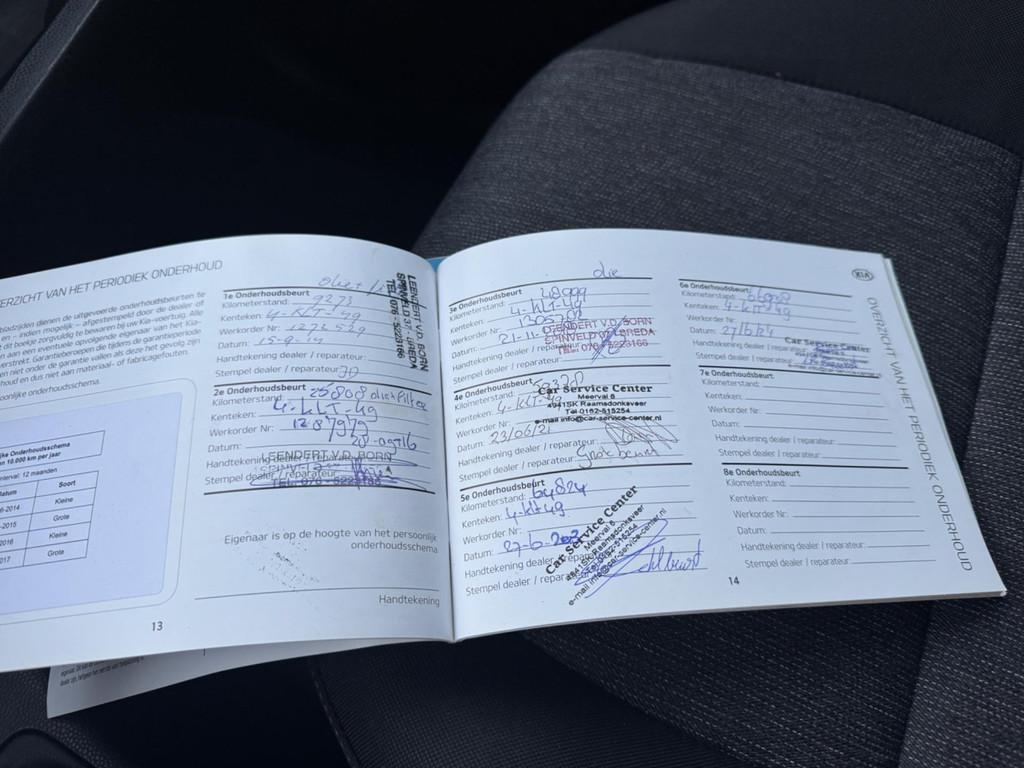 ERZICHT VAN HET PERIODIEK ONDERHOUD
bladzijden dienen de uitgevoerde onderhoudsbeurten te
en - indien mogelijk - afgestempeld door de dealer of
dit boekje zorgvuldig te bewaren bij uw Kia-voertuig. Alle
aan een eventuele opvolgende eigenaar van het Kia-
erstrekt. Garantieberoepen die tijdens de garantieperiode
en niet onder de garantie vallen als deze het gevolg zijn
houd en dus niet aan materiaal- of fabricagefouten.
oonlijke onderhoudsschema.
ke Onderhoudsschema
n 10.000 km per jaar
interval: 12 maanden
atum Soort
6-2014 Kleine
-2015 Grote
2016 Kleine
017 Grote
13
1e Onderhoudsbeurt
Kilometerstand: 9273
Kenteken: 4-KLT-49
Werkorder Nr.: 1272529
Datum: 15-9-14
Handtekening dealer / reparateur:
Stempel dealer / reparateur:
LEENDERT V.D. BORN
SPINVELD 37 - BREDA
TEL. 076 - 5223166
2e Onderhoudsbeurt
Kilometerstand: 25808 olie+filter
Kenteken: 4-KLT-49
Werkorder Nr.: 1287979
Datum: 28-april6
Handtekening dealer / reparateur:
Stempel dealer / reparateur:
LEENDERT V.D. BORN
TEL. 076 - 5223166
Eigenaar is op de hoogte van het persoonlijk
onderhoudsschema
Handtekening
olie
3e Onderhoudsbeurt
Kilometerstand: 48999
Kenteken: 4-KLT-49
Werkorder Nr.:
Datum: 21-11-
Handtekening dealer / reparateur:
Stempel dealer / reparateur:
LEENDERT V.D. BORN
SPINVELD 37 - BREDA
TEL. 076 - 5223166
4e Onderhoudsbeurt
Kilometerstand:
Kenteken: 4-KLT-49
Werkorder Nr.:
Datum: 23/06/21
Handtekening dealer / reparateur:
Stempel dealer / reparateur: Grote beurt
Car Service Center
Meerval 6
4941SK Raamsdonksveer
Tel 0162-515254
e-mail info@car-service-center.nl
5e Onderhoudsbeurt
Kilometerstand: 64824
Kenteken: 4-klt-49
Werkorder Nr.:
Datum: 29-6-202
Handtekening dealer / reparateur:
Stempel dealer / reparateur:
Car Service Center
Meerval 6
4941SK Raamsdonksveer
Tel 0162-515254
e-mail info@car-service-center.nl
6e Onderhoudsbeurt
Kilometerstand:
Kenteken: 4-klt-49
Werkorder Nr.:
Datum: 27/6/24
Handtekening dealer / reparateur:
Stempel dealer / reparateur:
Car Service Center
7e Onderhoudsbeurt
Kilometerstand:
Kenteken:
Werkorder Nr.:
Datum:
Handtekening dealer / reparateur:
Stempel dealer / reparateur:
8e Onderhoudsbeurt
Kilometerstand:
Kenteken:
Werkorder Nr.:
Datum:
Handtekening dealer / reparateur:
Stempel dealer / reparateur:
14
KIA
OVERZICHT VAN HET PERIODIEK ONDERHOUD